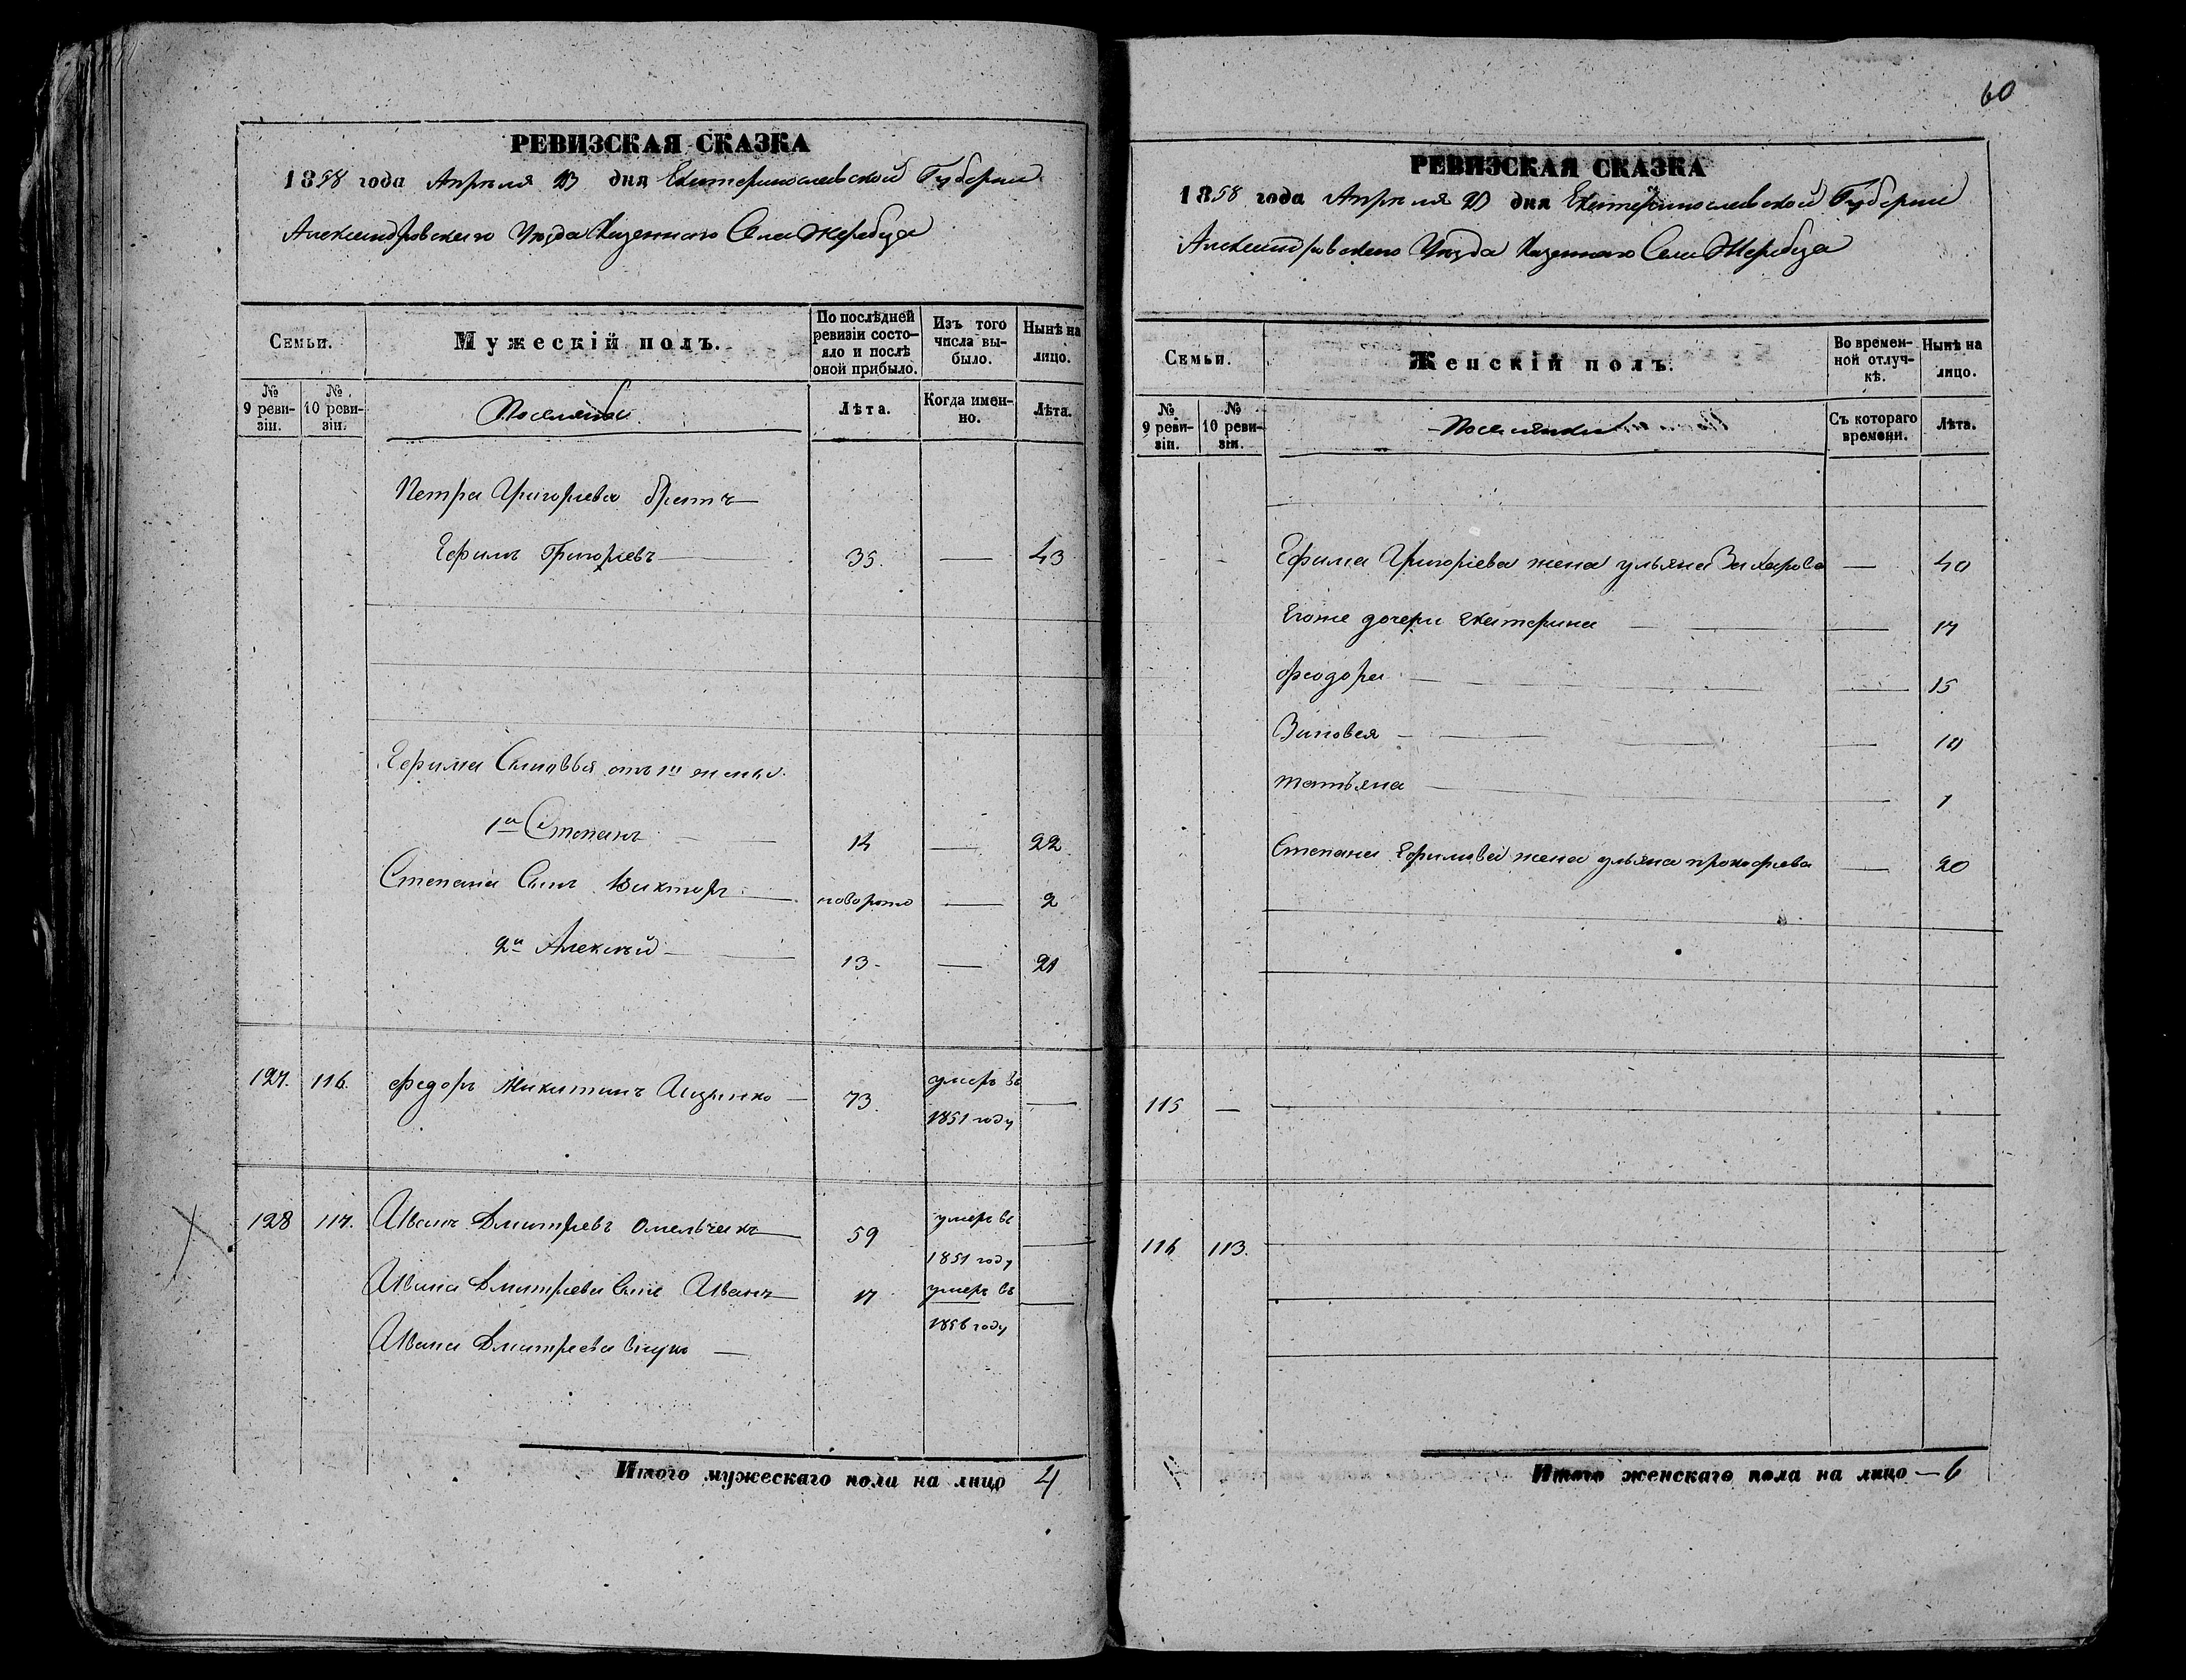 РЕВИЗСКАЯ СКАЗКА
1858 года Апреля дня Екатеринославской Губернии
Александровского Уезда Казенного Села Жеребца
Семьи.
Мужескій полъ.
По послѣдней ревизіи состояло и послѣ оной прибыло.
Изъ того числа выбыло.
Нынѣ на лицо.
№ 9 ревизіи.
№ 10 ревизіи.
Поселяне
Лѣта.
Когда именно.
Лѣта.
Петра Григорьева братъ —
Ефимъ Григорьевъ — 35. — 43
Ефима Сыновья отъ 1й жены
1й Степанъ — 14 — 22
Степана Сынъ Викторъ — новорож — 2
2й Алексѣй — 13 — 21
127. 116. Федоръ Никитинъ — 73. умеръ въ 1851 году —
128 117. Иванъ Дмитріевъ Омельченко — 59 умеръ въ 1851 году —
Ивана Дмитріева Сынъ Иванъ — 17 умеръ въ 1856 году —
Ивана Дмитріева внуки —
Итого мужескаго пола на лицо 4
60
РЕВИЗСКАЯ СКАЗКА
1858 года Апреля дня Екатеринославской Губернии
Александровского Уезда Казенного Села Жеребца
Семьи.
Женскій полъ.
Во временной отлучкѣ.
Нынѣ на лицо.
№ 9 ревизіи.
№ 10 ревизіи.
Поселянки
Съ котораго времени.
Лѣта.
Ефима Григоріева жена ульяна Захарова — 40
Егоже дочери Екатерина — 17
Феодора — 15
Зиновея — 10
татьяна — 1
Степана Ефимова жена ульяна прокофьева — 20
115 —
116 113.
Итого женскаго пола на лицо — 6